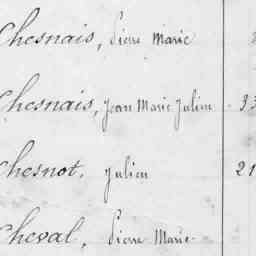 Chesnais, Pierre Marie
Chesnais, Jean Marie Julien 33
Chesnot, Julien 21
Cheval, Pierre Marie